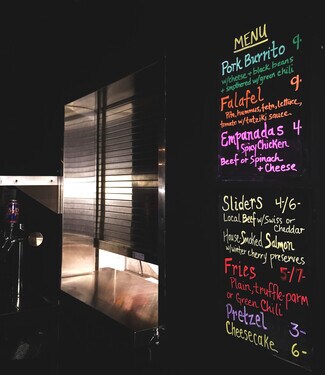 MENU
Pork Burrito 9-
w/cheese + black beans
+ smothered w/green chili
Falafel 9-
Pita, hummus, feta, lettuce,
tomato w/tatziki sauce
Empanadas 4-
Spicy Chicken
Beef or Spinach
+ Cheese
Sliders 4/6-
Local Beef w/Swiss or
Cheddar
House-Smoked Salmon
w/winter cherry preserves
Fries 5/7-
Plain, truffle-parm
or Green Chili
Pretzel 3-
Cheesecake 6-